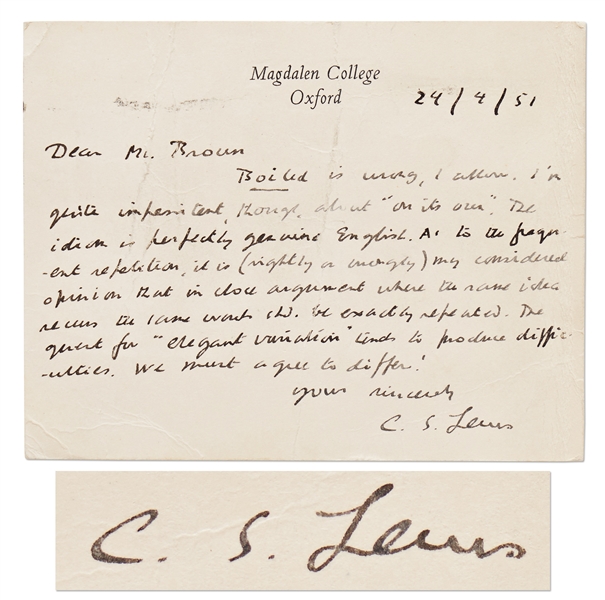 Magdalen College
Oxford
24/4/51
Dear Mr. Brown
Boiled is wrong, I allow. I'm
quite impenitent, though, about "on its own". The
idiom is perfectly genuine English. As to the frequ-
-ent repetition, it is (rightly or wrongly) my considered
opinion that in close argument where the same idea
recurs the same words shd. be exactly repeated. The
quest for "elegant variation" tends to produce diffic-
-ulties. We must agree to differ!
Yours sincerely
C. S. Lewis
C. S. Lewis